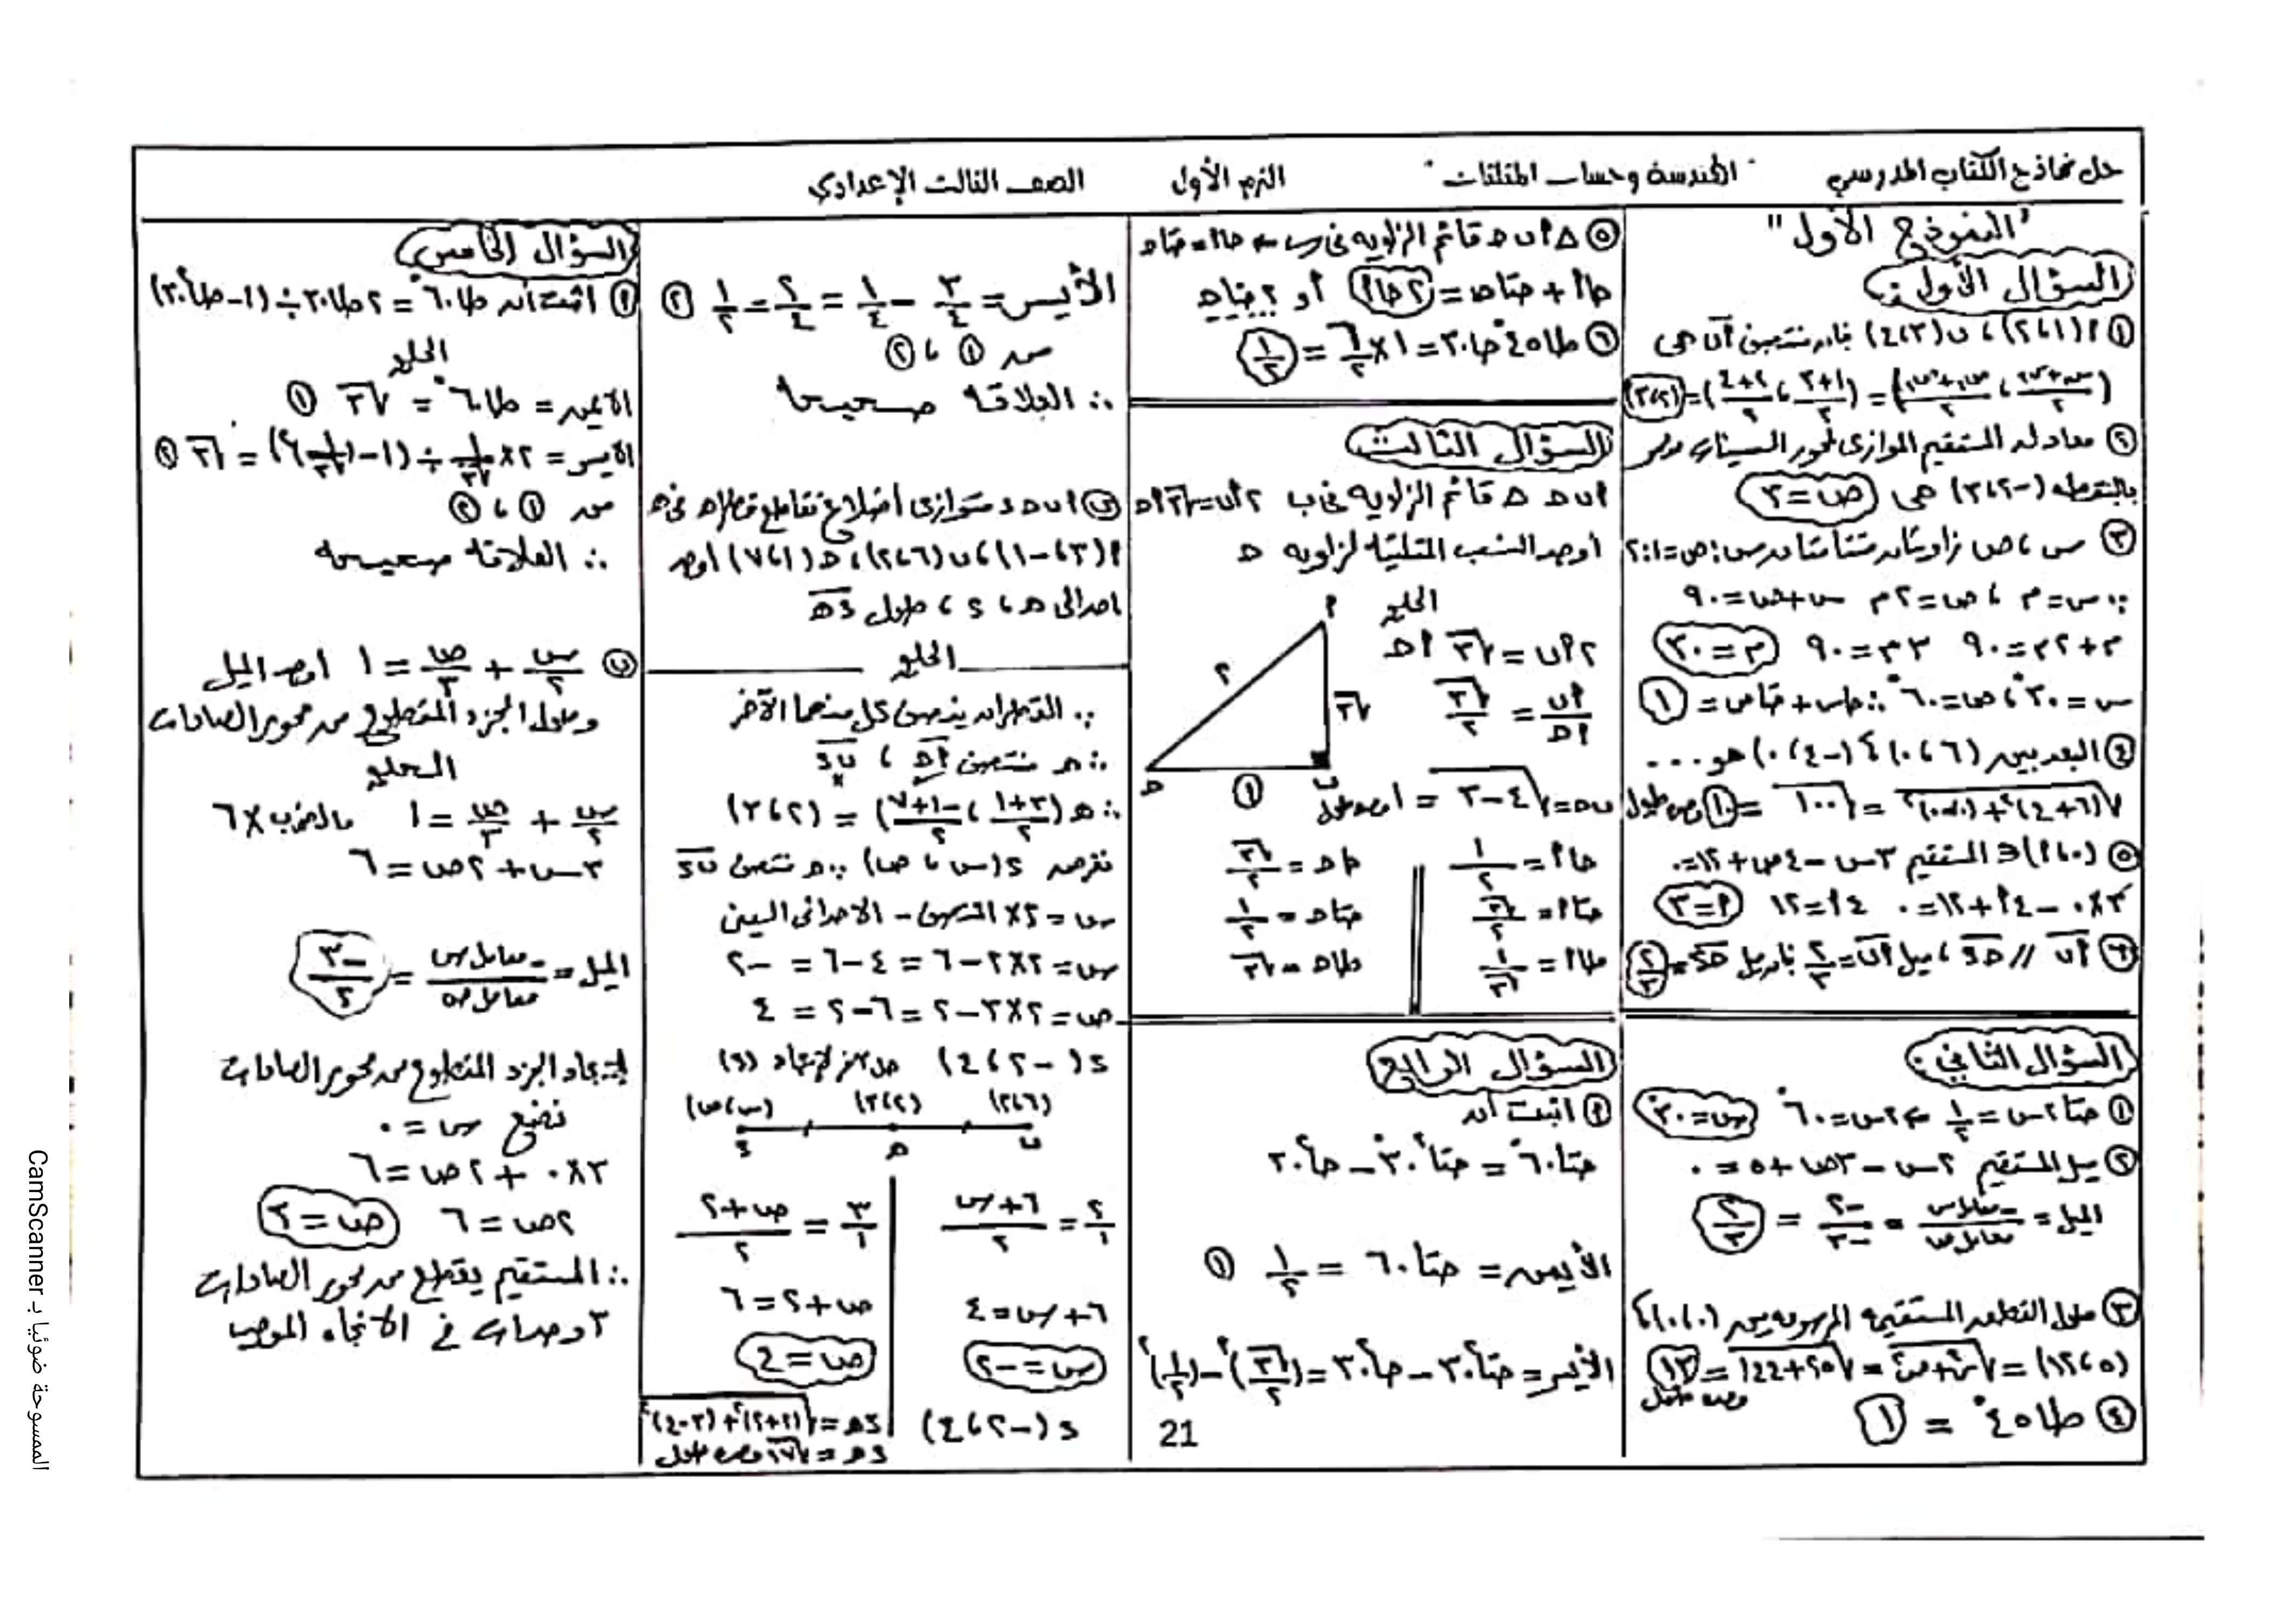 حل نماذج الكتاب المدرسي "الهندسة وحساب المثلثات" الترم الأول الصف الثالث الإعدادي
"النموذج الأول"
السؤال الأول:
① م (١، ٢)، ب (٣، ٤) فإن منتصف م ب هى
(س١+س٢/٢، ص١+ص٢/٢) = (١+٣/٢، ٢+٤/٢) = (٢، ٣)
② معادلة المستقيم الموازى لمحور السينات ويمر
بالنقطة (-٢، ٣) هى ص = ٣
③ س، ص زاويتان متتامتان س:ص = ١:٢
∵ س = م، ص = ٢م س + ص = ٩٠
م + ٢م = ٩٠ ٣م = ٩٠ م = ٣٠
س = ٣٠°، ص = ٦٠° ∴ حاس + حتاص = ١
④ البعد بين (٦، ٠) ؛ (-٤، ٠) هو ...
√(٦+٤)²+(٠-٠)² = √١٠٠ = ١٠ وحدة طول
⑤ (٠، م) ∈ المستقيم ٣س - ٤ص + ١٢ = ٠
٣×٠ - ٤م + ١٢ = ٠ ٤م = ١٢ م = ٣
⑥ م ب // حـ ء، ميل م ب = ٢/٣ فإن ميل حـ ء = ٢/٣
السؤال الثانى:
① حتا٢س = ١/٢ ← ٢س = ٦٠° س = ٣٠°
② ميل المستقيم ٢س - ٣ص + ٥ = ٠
الميل = -معامل س/معامل ص = -٢/-٣ = ٢/٣
③ طول القطعة المستقيمة المرسومة بين (٠، ٠)،
(٥، ١٢) = √س²+ص² = √٢٥+١٤٤ = ١٣
وحدة طول
④ طا٤٥° = ١
⑤ △ م ب حـ قائم الزاوية فى ب ← حام = حتاحـ
حام + حتاحـ = ٢حام أو ٢حتاحـ
⑥ طا٤٥° حا٣٠° = ١×١/٢ = ١/٢
السؤال الثالث
م ب حـ △ قائم الزاوية فى ب ٢م ب = √٣ م حـ
أوجد النسب المثلثية لزاوية حـ
الحل
٢م ب = √٣ م حـ
م ب/م حـ = √٣/٢
م
٢
√٣
حـ
①
ب
ب حـ = √٤-٣ = ١ وحدة طول
حام = ١/٢ حاحـ = √٣/٢
حتام = √٣/٢ حتاحـ = ١/٢
طام = ١/√٣ طاحـ = √٣
السؤال الرابع
م اثبت أن
حتا٦٠° = حتا²٣٠° - حا²٣٠
الأيمن = حتا٦٠ = ١/٢ ①
الأيسر = حتا²٣٠ - حا²٣٠ = (√٣/٢)² - (١/٢)²
21
الأيسر = ٣/٤ - ١/٤ = ٢/٤ = ١/٢ ②
من ①، ②
∴ العلاقة صحيحة
ب م ب حـ ء متوازى أضلاع تقاطع قطراه فى هـ
م (٣، -١)، ب (٦، ٢)، حـ (١، ٧) أوجد
احداثى هـ، ء، طول هـ ء
الحل
∵ القطران ينصف كل منهما الآخر
∴ هـ منتصف م حـ، ب ء
∴ هـ (٣+١/٢، -١+٧/٢) = (٢، ٣)
نفرض ء (س، ص) ∵ هـ منتصف ب ء
س = ٢× المنتصف - الاحداثى السينى
س = ٢×٢ - ٦ = ٤ - ٦ = -٢
ص = ٢×٣ - ٢ = ٦ - ٢ = ٤
ء (-٢، ٤) حل آخر لإيجاد (ء)
(س، ص) (٢، ٣) (٦، ٢)
ء هـ ب
٢/١ = ٦+س/٢ ٣/١ = ص+٢/٢
٦+س = ٤ ص+٢ = ٦
س = -٢ ص = ٤
ء (-٢، ٤)
ء هـ = √(٢+٢)²+(٣-٤)²
ء هـ = √١٧ وحدة طول
السؤال الخامس
م اثبت أن طا٦٠° = ٢طا٣٠ ÷ (١ - طا²٣٠)
الحل
الايمن = طا٦٠° = √٣ ①
الايسر = ٢×١/√٣ ÷ (١ - (١/√٣)²) = √٣ ②
من ①، ②
∴ العلاقة صحيحة
ب س/٢ + ص/٣ = ١ أوجد الميل
وطول الجزء المقطوع من محور الصادات
الحل
س/٢ + ص/٣ = ١ بالضرب × ٦
٣س + ٢ص = ٦
الميل = -معامل س/معامل ص = -٣/٢
لإيجاد الجزء المقطوع من محور الصادات
نضع س = ٠
٣×٠ + ٢ص = ٦
٢ص = ٦ ص = ٣
∴ المستقيم يقطع من محور الصادات
٣ وحدات فى الاتجاه الموجب
الممسوحة ضوئيا بـ CamScanner